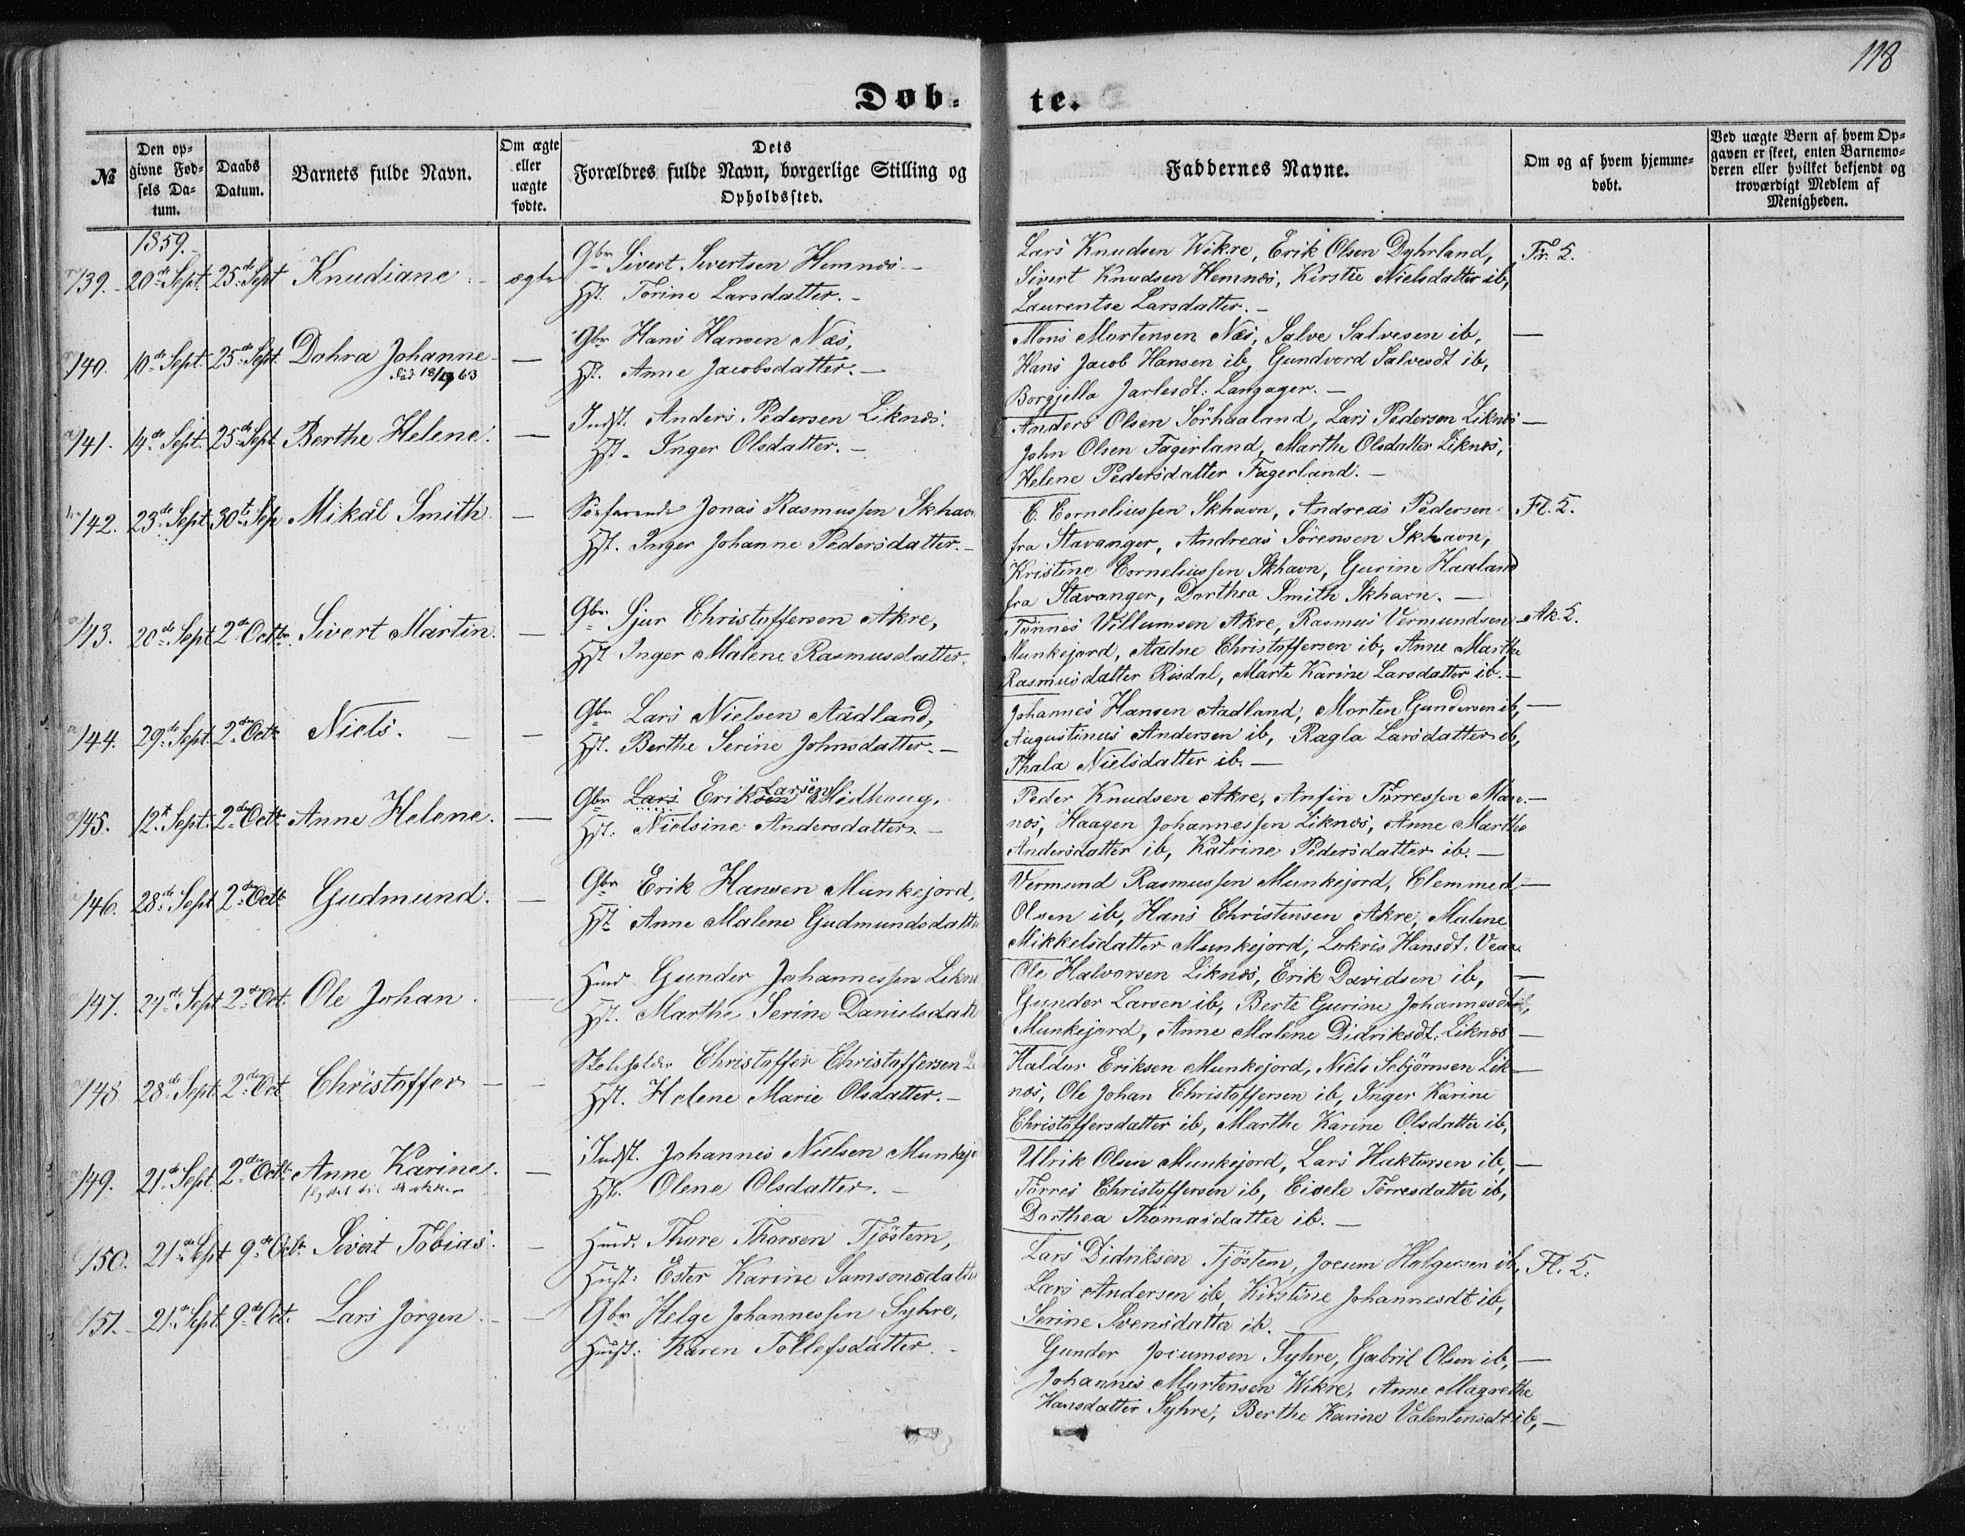 118
Døb-
te.
№
Den op-
givne Fød-
sels Da-
tum.
Daabs
Datum.
Barnets fulde Navn.
Om ægte
eller
uægte
fødte.
Dets
Forældres fulde Navn, borgerlige Stilling og
Opholdssted.
Faddernes Navne.
Om og af hvem hjemme-
døbt.
Ved uægte Børn af hvem Op-
gaven er skeet, enten Barnemo-
deren eller hvilket bekjendt og
troværdigt Medlem af
Menigheden.
1859.
139. 20de Sept. 25de Sept Knudiane ægte
Gbr Sivert Sivertsen Hemnæs
Hst. Torine Larsdatter.
Lars Knudsen Wikre, Erik Olsen Dyhrland,
Sivert Knudsen Hemnæs, Kirstie Nielsdatter ib,
Laurentse Larsdatter.
Fr. 5.
140. 10de Sept. 25de Sept. Dohra Johanne —
død 18/9 63
Gbr Hans Hansen Næs,
Hst. Anne Jacobsdatter.
Mons Mortensen Næs, Salve Salvesen ib, —
Hans Jacob Hansen ib, Gundvord Salvesdt ib,
Borgjella Jarlesdt: Langager.
141. 14de Sept. 25de Sept. Berthe Helene. —
Indst. Anders Pedersen Liknæs.
Hst. Inger Olsdatter.
Anders Olsen Sörhaaland, Lars Pedersen Liknæs —
John Olsen Fagerland, Marthe Olsdatter Liknæs,
Helene Pedersdatter Fagerland.
142. 23de Sept. 30te Sep Mikal Smith. —
Söefarende Jonas Rasmussen Skhavn
Hst. Inger Johanne Pedersdatter.
C. Corneliussen Skhavn, Andreas Pedersen
fra Stavanger, Andreas Sörensen Skhavn,
Kristine Corneliussen Skhavn, Gurine Haaland
fra Stavanger, Dorthea Smith Skhavn.
Fl. 5.
143. 20de Sept. 2de Octbr. Sivert Martin. —
Gbr. Sjur Christoffersen Akre,
Hst Inger Malene Rasmusdatter.
Tönnes Villumsen Akre, Rasmus Vermundsen
Munkejord, Aadne Christoffersen ib, Anne Marthe
Rasmusdatter Risdal, Marte Karine Larsdatter ib.
Ak. 5.
144. 29de Sept. 2de Octb. Niels. —
Gbr Lars Nielsen Aadland,
Hst. Berthe Serine Johnsdatter.
Johannes Hansen Aadland, Morten Gundersen ib, —
Augustinus Andersen ib, Ragla Larsdatter ib,
Thala Nielsdatter ib.
145. 12te Sept. 2den Octb. Anne Helene. —
Larsen
Gbr Lars Eriksen Midhaug,
Hst. Nielsine Andersdatter.
Peder Knudsen Akre, Anfin Törressen Man- —
nes, Haagen Johannessen Liknæs, Anne Marthe
Andersdatter ib, Katrine Pedersdatter ib.
146. 28de Sept 2den Octb Gudmund. —
Gbr Erik Hansen Munkejord,
Hst Anne Malene Gudmundsdatt
Vermund Rasmussen Munkejord, Clemmed —
Olsen ib, Hans Christensen Akre, Malene
Mikkelsdatter Munkejord, Lokris Hansdt. Vea.
147. 24de Sept 2de Oct. Ole Johan. —
Hmd Gunder Johannessen Likn
Hst. Marthe Serine Danielsdatt
Ole Halvorsen Liknæs, Erik Davidsen ib, —
Gunder Larsen ib, Berte Gurine Johannesdt
Munkejord, Anne Malene Didriksdt: Liknæs —
148 28de Sept. 2den Oct Christoffer —
Skoleholder Christoffer Christoffersen
Hst. Helene Marie Olsdatter.
Haldor Eriksen Munkejord, Niels Sebjörnsen Lik- —
næs, Ole Johan Christoffersen ib, Inger Karine
Christoffersdatter ib, Marthe Karine Olsdatter ib,
149. 21de Sept. 2den Octb. Anne Karine. —
Indst. Johannes Nielsen Munkejo
Hst. Olene Olsdatter.
Ulrik Olsen Munkejord, Lars Haktorsen ib, —
Törres Christoffersen ib, Eisele Törresdatter ib,
Dorthea Thomasdatter ib.
150. 21de Sept 9de Octb. Sivert Tobias. —
Hmd. Thore Thorsen Tjöstem,
Hust: Ester Karine Samsonsdatt
Lars Didriksen Tjöstem, Jocum Holgersen ib,
Lars Andersen ib, Kirstine Johannesdt ib,
Serine Svensdatter ib.
Fl. 5.
151. 21de Sept 9de Oct. Lars Jörgen. —
Gbr Helge Johannessen Syhre,
Hust: Karen Tollefsdatter.
Gunder Jocumsen Syhre, Gabril Olsen ib, —
Johannes Mortensen Wikre, Anne Magrethe
Hansdatter Syhre, Berthe Karine Valentensdt ib, —